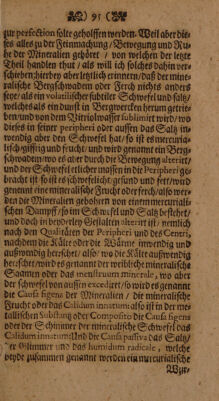 ) 91 (
zur perfection solte geholffen werden. Weil aber die-
ses alles zu der Feinmachung / Bewegung und Ru-
he der Mineralien gehöret / von welchen der letzte
Theil handlen that / als will ich solches dahin ver-
schieben; hierbey aber letzlich erinnern / daß der mine-
ralische Bergschwaden oder Ferch nichts anders
seye / als ein volatilischer subtiler Schwefel und saltz /
welches als ein dunst in Bergwercken herum getrie-
ben / und von dem Vitriolwasser sublimirt wird / wo
dieses in seiner peripheri oder aussen das Saltz in-
wendig aber den Schwefel hat / so ist es mercuria-
lisch-gifftig und feucht / und wird genannt ein Berg-
schwadem; wo es aber durch die Bewegung alterirt /
und der Schwefel etlicher massen in die Peripheri ge-
bracht ist so ist es schwefelich / gesund und fett / wird
genennt eine mineralische Frucht oder ferch / also wer-
den die Mineralien gebohren von einem mercuriali-
schen Dampff / so im Schwefel und Saltz bestehet /
und doch in beyderley Gestalten alterirt ist / nemlich
nach den Qualitäten der Peripheri und des Centri,
nachdem die Kälte oder die Wärme inwendig und
auswendig herrschet / also / wo die Kälte auswendig
herrschet / wird es genannt der weibliche mineralische
Saamen oder das menstruum minerale, wo aber
der schwefel von aussen excediret / so wird es genannt
die Causa figens der Mineralien / die mineralische
Frucht oder das Calidum innatum: also ist in der me-
tallischen Substanz oder Composito die Causa figens
oder der Schimmer der mineralische Schwefel das
Calidum innatum: Und die Causa passiva das Saltz /
er Glimmer und das humidum radicale, welche
beyde zusammen genannt werden ein mercurialische